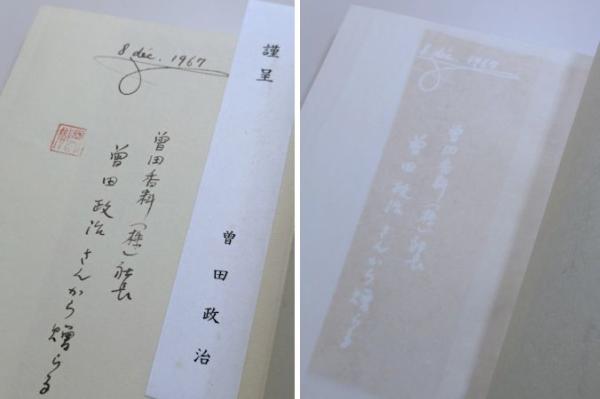 8 déc. 1967
曽田香料(株)社長
曽田政治さんから贈らる
謹呈
曽田政治
8 déc. 1967
曽田香料(株)社長
曽田政治さんから贈らる